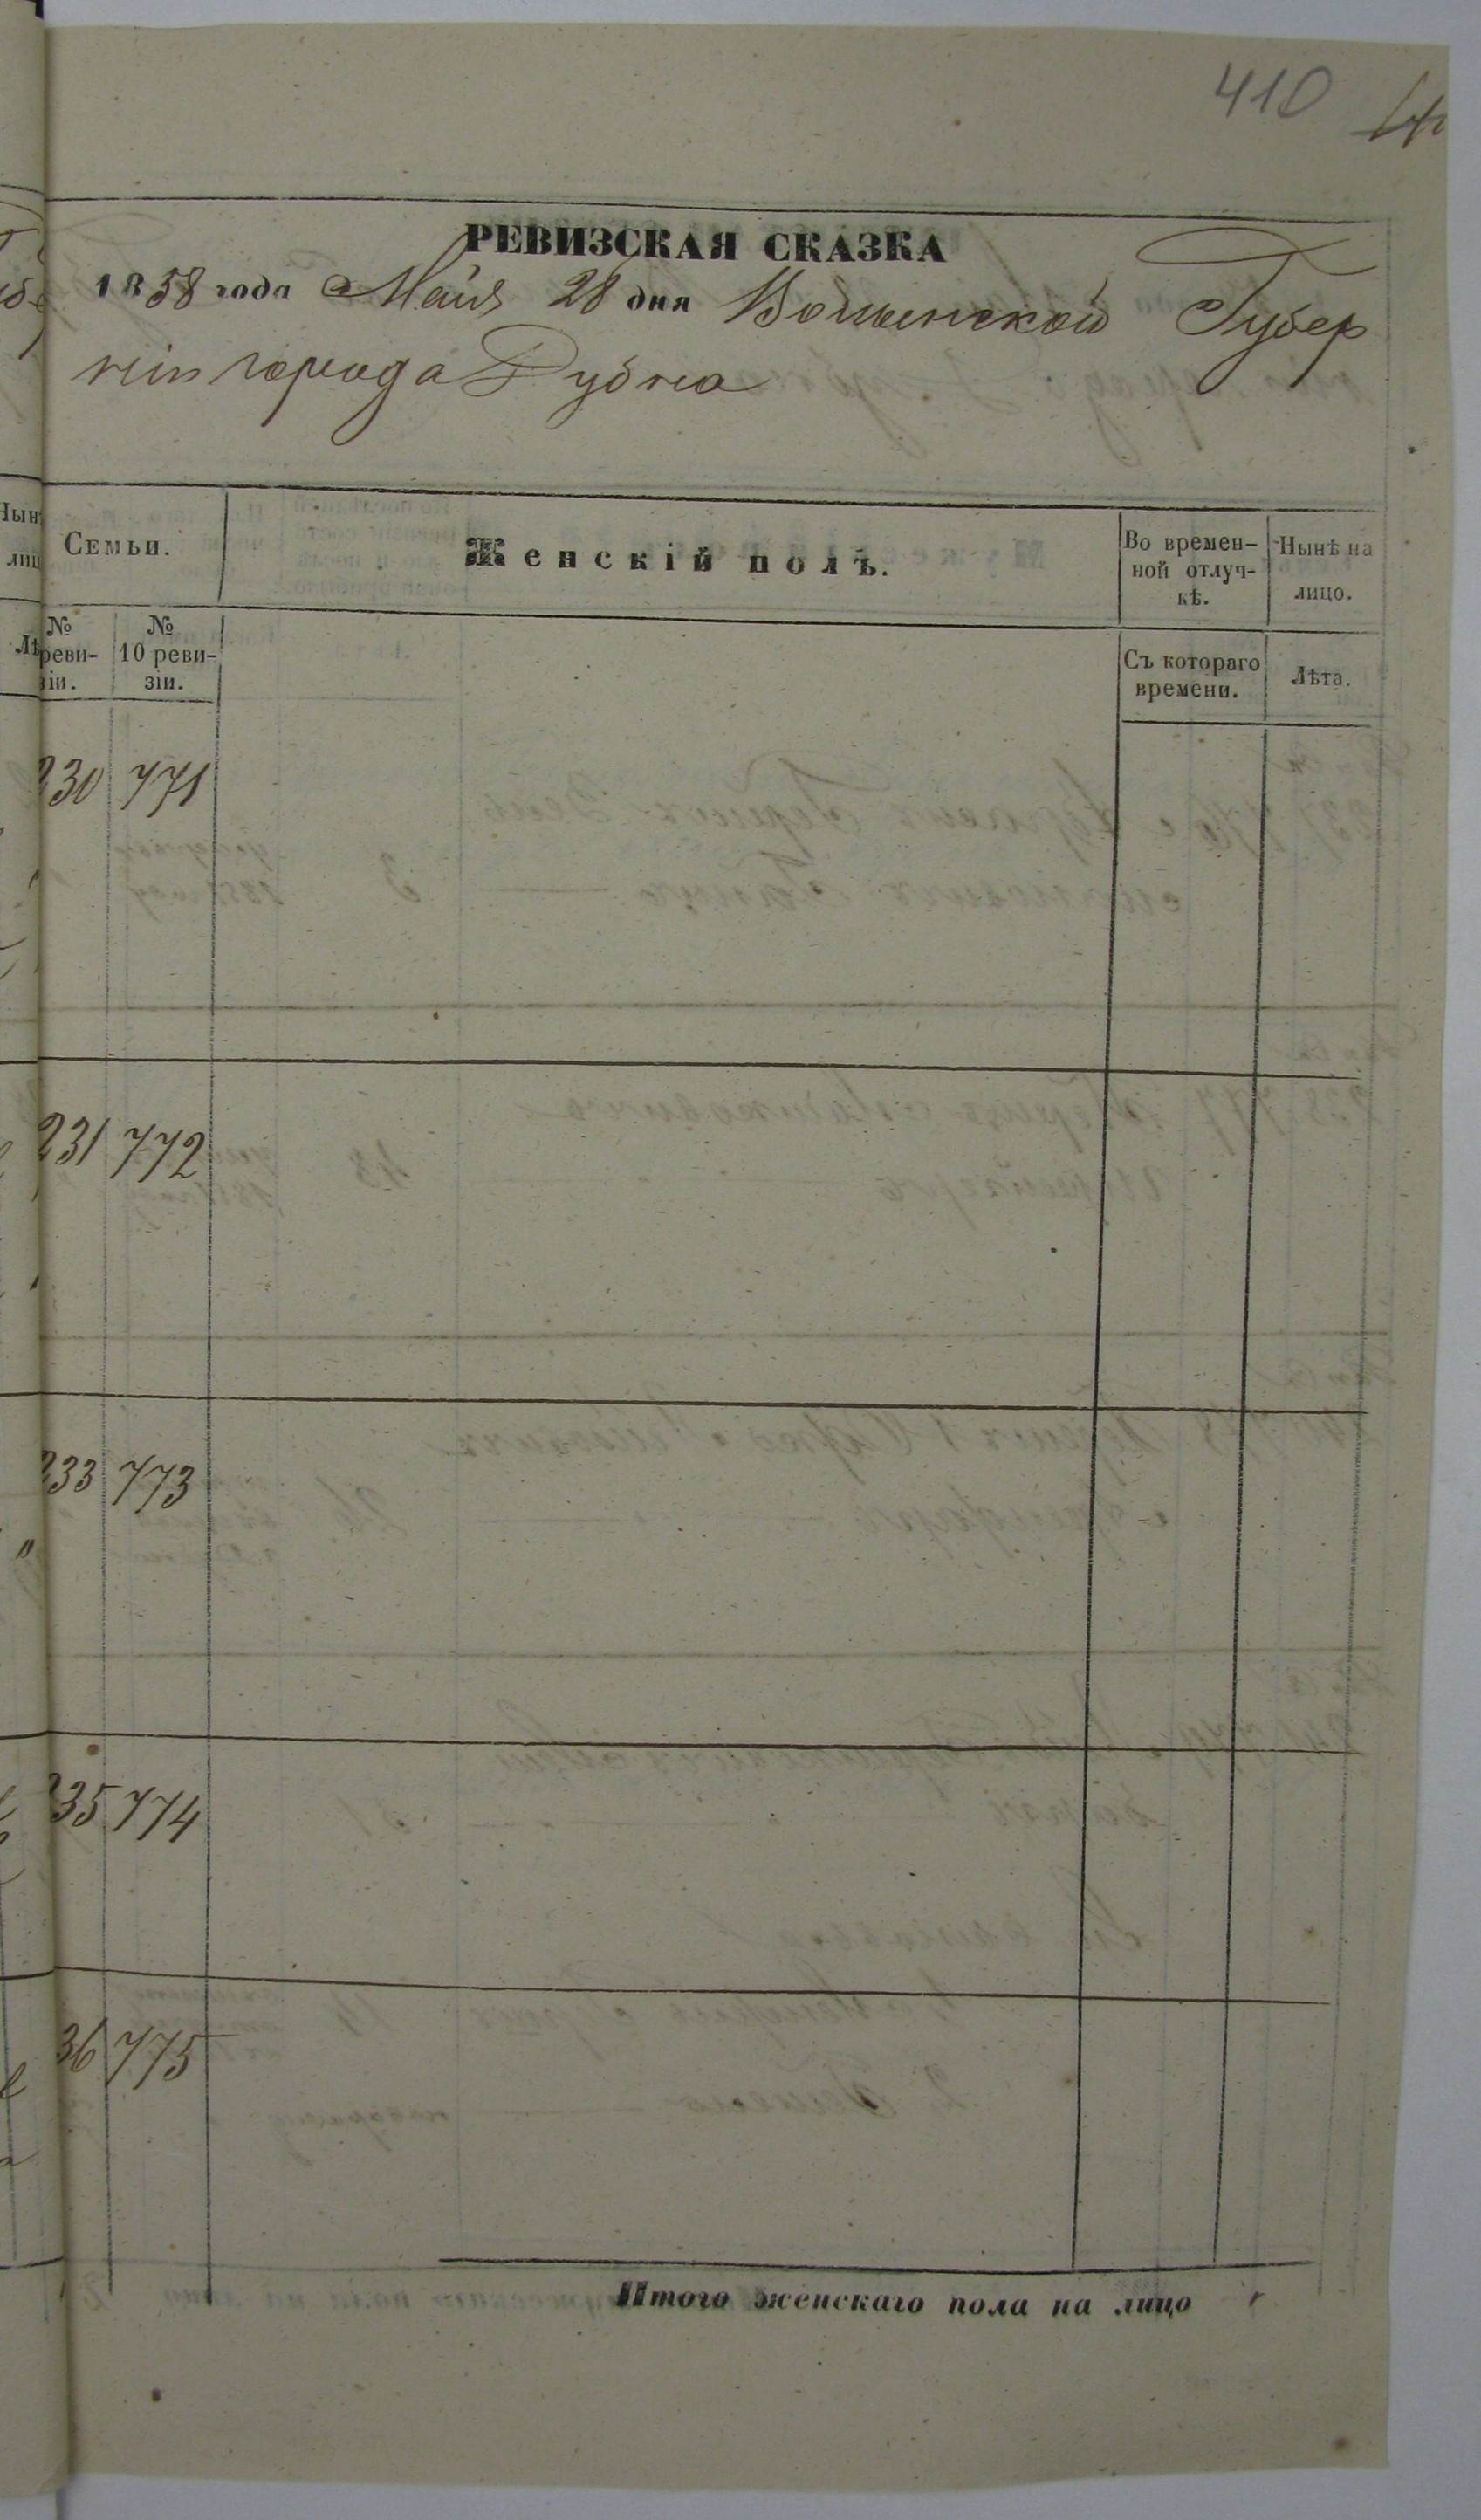 410
РЕВИЗСКАЯ СКАЗКА
1858 года Мая 28 дня Волынской Губер
ніи города Дубна
Семьи.
Женскій полъ.
Во времен-
ной отлуч-
кѣ.
Нынѣ на
лицо.
№
реви-
зіи.
№
10 реви-
зіи.
Съ котораго
времени.
Лѣта.
230 771
231 772
233 773
235 774
36 775
Итого женскаго пола на лицо